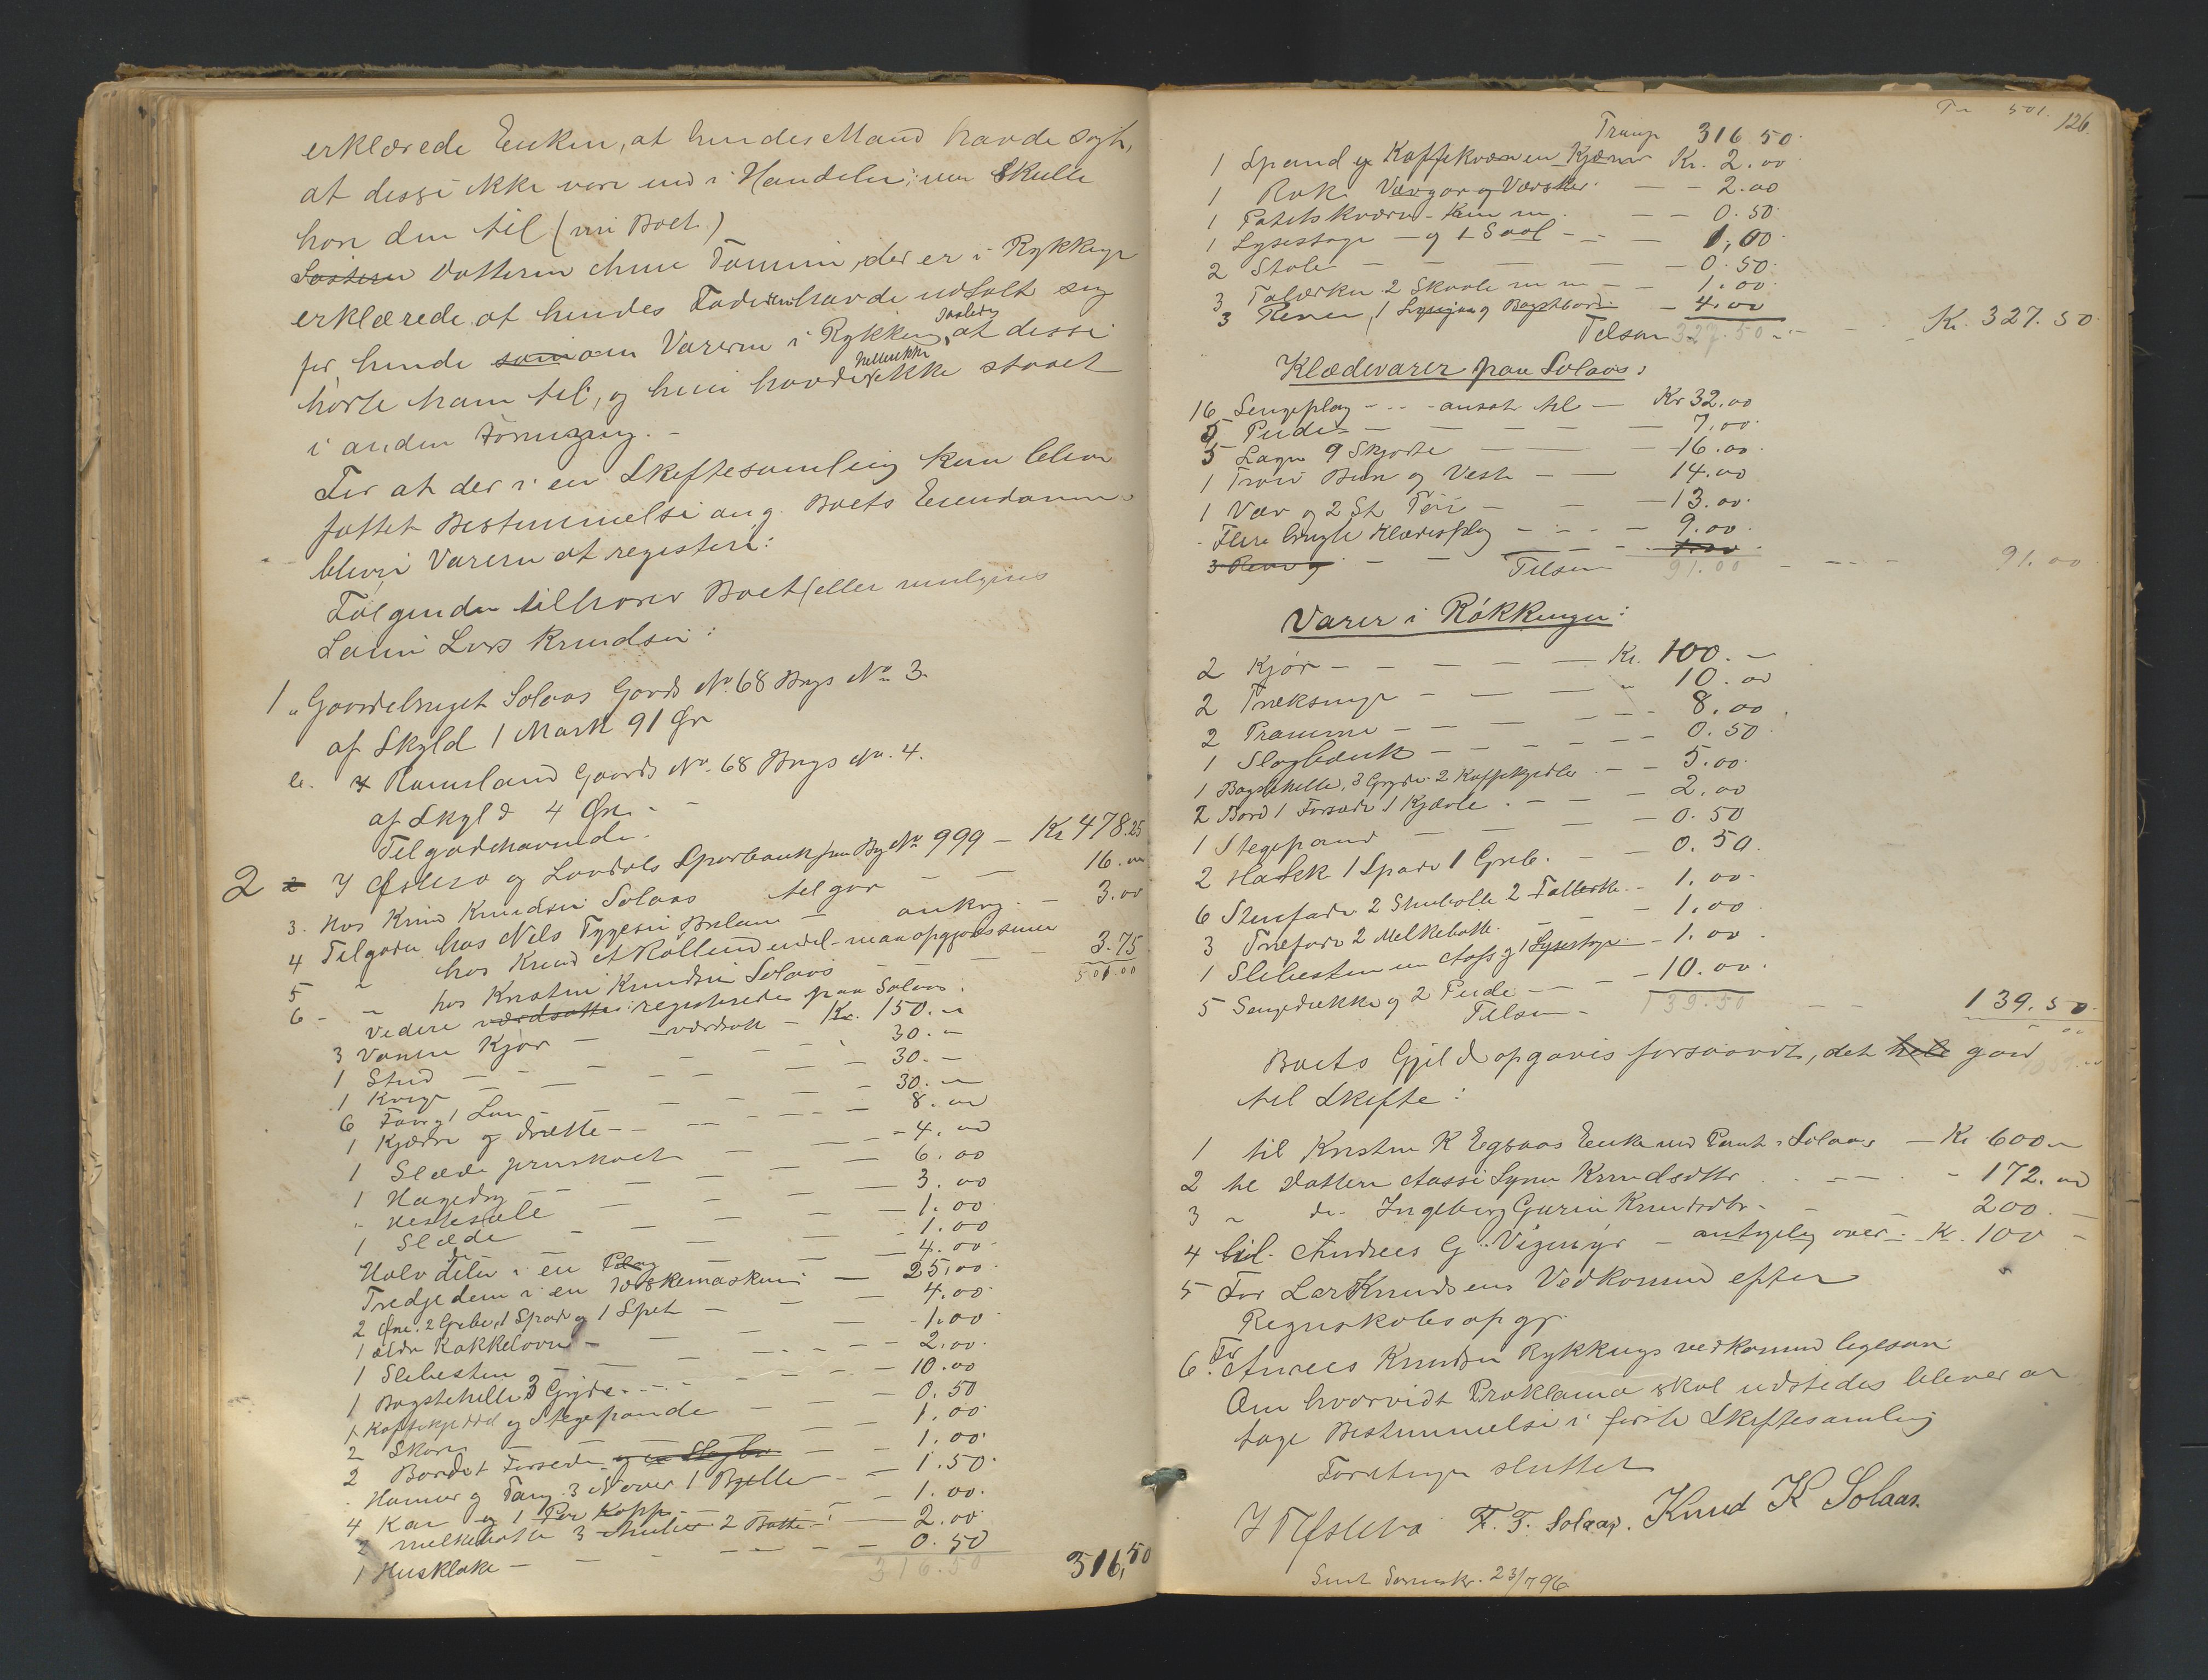 erklærede Enken, at hendes Mand havde sagt,
at disse ikke var med i Handelen; men skulle
høre den til (mi Boet)
Søsteren Datteren Anne Tomine, der er i Røkkinge
erklærede at hendes Fader havde udtalt sig
for hende som om Varerne i Røkkingen saaledes at disse
hørte ham til, og hun havde hellerikke ikke staaet
i anden Formening. -
For at der i en Skiftesamling kan blive
fattet Bestemmelse ang. Boets Eiendomme
blev Varerne at registere:
Følgende tilhører Boet (eller muligens
Sønnen Lars Knudsen:
1 a. Gaardebruget Solaas Gaards No. 68 Brugs No. 3.
af Skyld 1 Mark 91 Øre
b. Ramsland Gaards No. 68 Brugs No. 4.
af Skyld 4 Øre -
Tilgodehavende.
2 I Øslebø og Laudals Sparebank paa Bog No. 999 - Kr 478.25
3. Hos Knud Knudsen Solaas tilgode - - 16.00
4 Tilgode hos Nils Tygesen - ankrg. - 3.00
5 " hos Knud Røllend endel - maaopgjøres senere
6 - " hos Kristine Knudsen Solaas - - 3.75
501.00
Videre værdsattes: registeredes paa Solaas.
3 Vaarne Kjør - værdsatt - Kr. 150.-
1 Stud - - - 30.-
1 Kvige - - - 30.-
6 Faar og 1 Lam - - - 30.-
1 Kjærre og Drætte - - - 8.00
1 Slæde jernskoet - - 4.00
1 Høgedrog - - - 6.00
" Hestesæle - - - 3.00
1 Slæde - - - 1.00
Halv delen i en Plog - - 1.00
Tredje delen i en Tærskemaskine - 4.00
25,00
2 Øxe, 2 Grebe, 1 Spade og 1 Spet - 4.00
1 ældre Kakkelovn - - 1.00
1 Slibesten - - - 2.00
1 Bagstehelle 3 Gryder - - - 10.00
1 Kaffekjedel og Stegepande - - 0.50
2 Skovle - - - 1.00
2 Borde 1 Forsæde og en Slagbe - 1.00
Hammer og Tang 3 Navar 1 Bjelle - 1.50
4 Kar og 1 Par Kopper - - 1.00.
2 Melkebøtte 3 2 Bøtte - 2.00
1 Husklokke - - - 0.50
316.50 316,50
Tr 501. 126.
Transp 316 50.
1 Spand og Kaffekværn en Kjærne Kr. 2.00
1 Rok Vævgar og Vævskee - - 2.00
1 Potetskværn - Kum m - - 0.50
1 Lysestage - og 1 Saal - - 1,00
2 Stole - - - 0.50
3 Talærken 2 Skaale m m - - 1.00
3 Tener, 1 og Bagstbord - 4.00
Tilsam 327.50 - - Kr. 327.50
Klædevarer paa Solaas:
16 Sengeplag - - - ansat til - Kr 32.00
5 Puder - - - 7,00.
5 Lagen 9 Skjorte - - 16.00.
1 Trøie Buxe og Vest - - 14.00
1 Vær og 2 St Tøi - - 13.00.
- Flere brugte Klædesplag - - - 9.00.
3 Tener og - - 4.00
Tilsam 91.00 - - - 91.00
Varer i Røkkingen:
2 Kjør - - - - Kr. 100.-
2 Træksenge - - - " 10.00
2 Pramme - - - - 8.00
1 Slagbænk - - - - 0.50
1 Bagstehelle, 3 Gryder 2 Kaffekjedler - - 5.00.
2 Bord 1 Forsæde 1 Kjævle - - - 2.00
1 Stegepand - - - - 0.50
2 Hakk 1 Spade 1 Greb. - - 0.50.
6 Stenfade 2 Stenbolle 2 Tallerk. - 1.00-
3 Træfade 2 Melkebøtte. - - 1.00
1 Slibesten en og 1 Lysestage - 1.00.
5 Sengedækker og 2 Puder - - - 10.00.
Tilsam - 139.50 - - 139.50
Boets Gjeld opgaves forsaavidt, det hele gaar
til Skifte:
1 til Kristen K Egsaas Enke med Pant i Solaas - Kr 600 -
2 til Datteren Aasse Syne Knudsdttr - - - 172.00
3 " do - Ingeborg Gurine Knudsdtr - - 200.-
4 til Andrees G. Vigmyr - antagelig over - Kr. 100 -
5 For Lars Knudsens Vedkommend efter
Regnskabsopgj.
6. For Anrees Knudsen Røkkings vedkommend ligesaa
Om hvorvidt Proklama skal udstedes blever at
tage Bestemmelse i første Skiftesamling
Forretnigen sluttet
F. T. Solaas. Knud K Solaas.
Sendt Sorenskr. 23/7 96